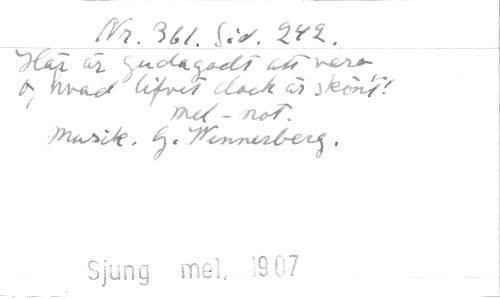 Nr. 361. Sid. 242.
Här är gudagodt att vara
o, hvad lifvet dock är skönt!
mel - not.
Musik. G. Wennerberg.
Sjung mel, 1907